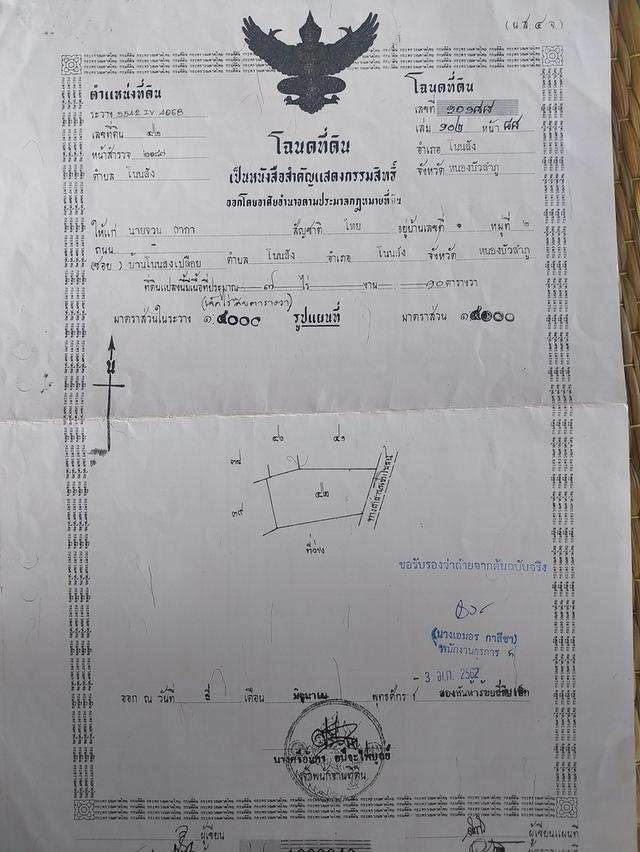 (น.ส. ๔ จ.)
ตำแหน่งที่ดิน
ระวาง 5542 IV 4068
เลขที่ดิน ๔๒
หน้าสำรวจ
ตำบล โนนสัง
โฉนดที่ดิน
เลขที่ ๑๐๑๘๘
เล่ม ๑๐๒ หน้า ๘๘
อำเภอ โนนสัง
จังหวัด หนองบัวลำภู
โฉนดที่ดิน
เป็นหนังสือสำคัญแสดงกรรมสิทธิ์
ออกโดยอาศัยอำนาจตามประมวลกฎหมายที่ดิน
ให้แก่ นายจวน กาถา สัญชาติ ไทย อยู่บ้านเลขที่ ๑ หมู่ที่ ๒
ถนน -
(ซอย) บ้านโนนสงเปลือย ตำบล โนนสัง อำเภอ โนนสัง จังหวัด หนองบัวลำภู
ที่ดินแปลงนี้มีเนื้อที่ประมาณ ๗ ไร่ งาน ๑๐ ตารางวา
(เจ็ดไร่สิบตารางวา)
มาตราส่วนในระวาง ๑:๔๐๐๐ รูปแผนที่ มาตราส่วน
น
๔๐ ๔๑
๓๘
๔๒
๓๙
ที่ว่าง
ขอรับรองว่าถ่ายจากต้นฉบับจริง
(นางเอมอร กาสีชา)
พนักงานธุรการ
- 3 ม.ค. 2562
ออก ณ วันที่ สี่ เดือน มิถุนายน พุทธศักราช สองพันห้าร้อยสี่สิบเอ็ด
เจ้าพนักงานที่ดิน
ผู้เขียน
ผู้เขียนแผนที่